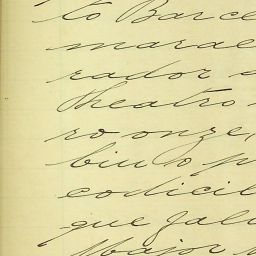 to Barce
marae
rador d
theatro
ro onze,
biu o p
codicil
que fal
Major